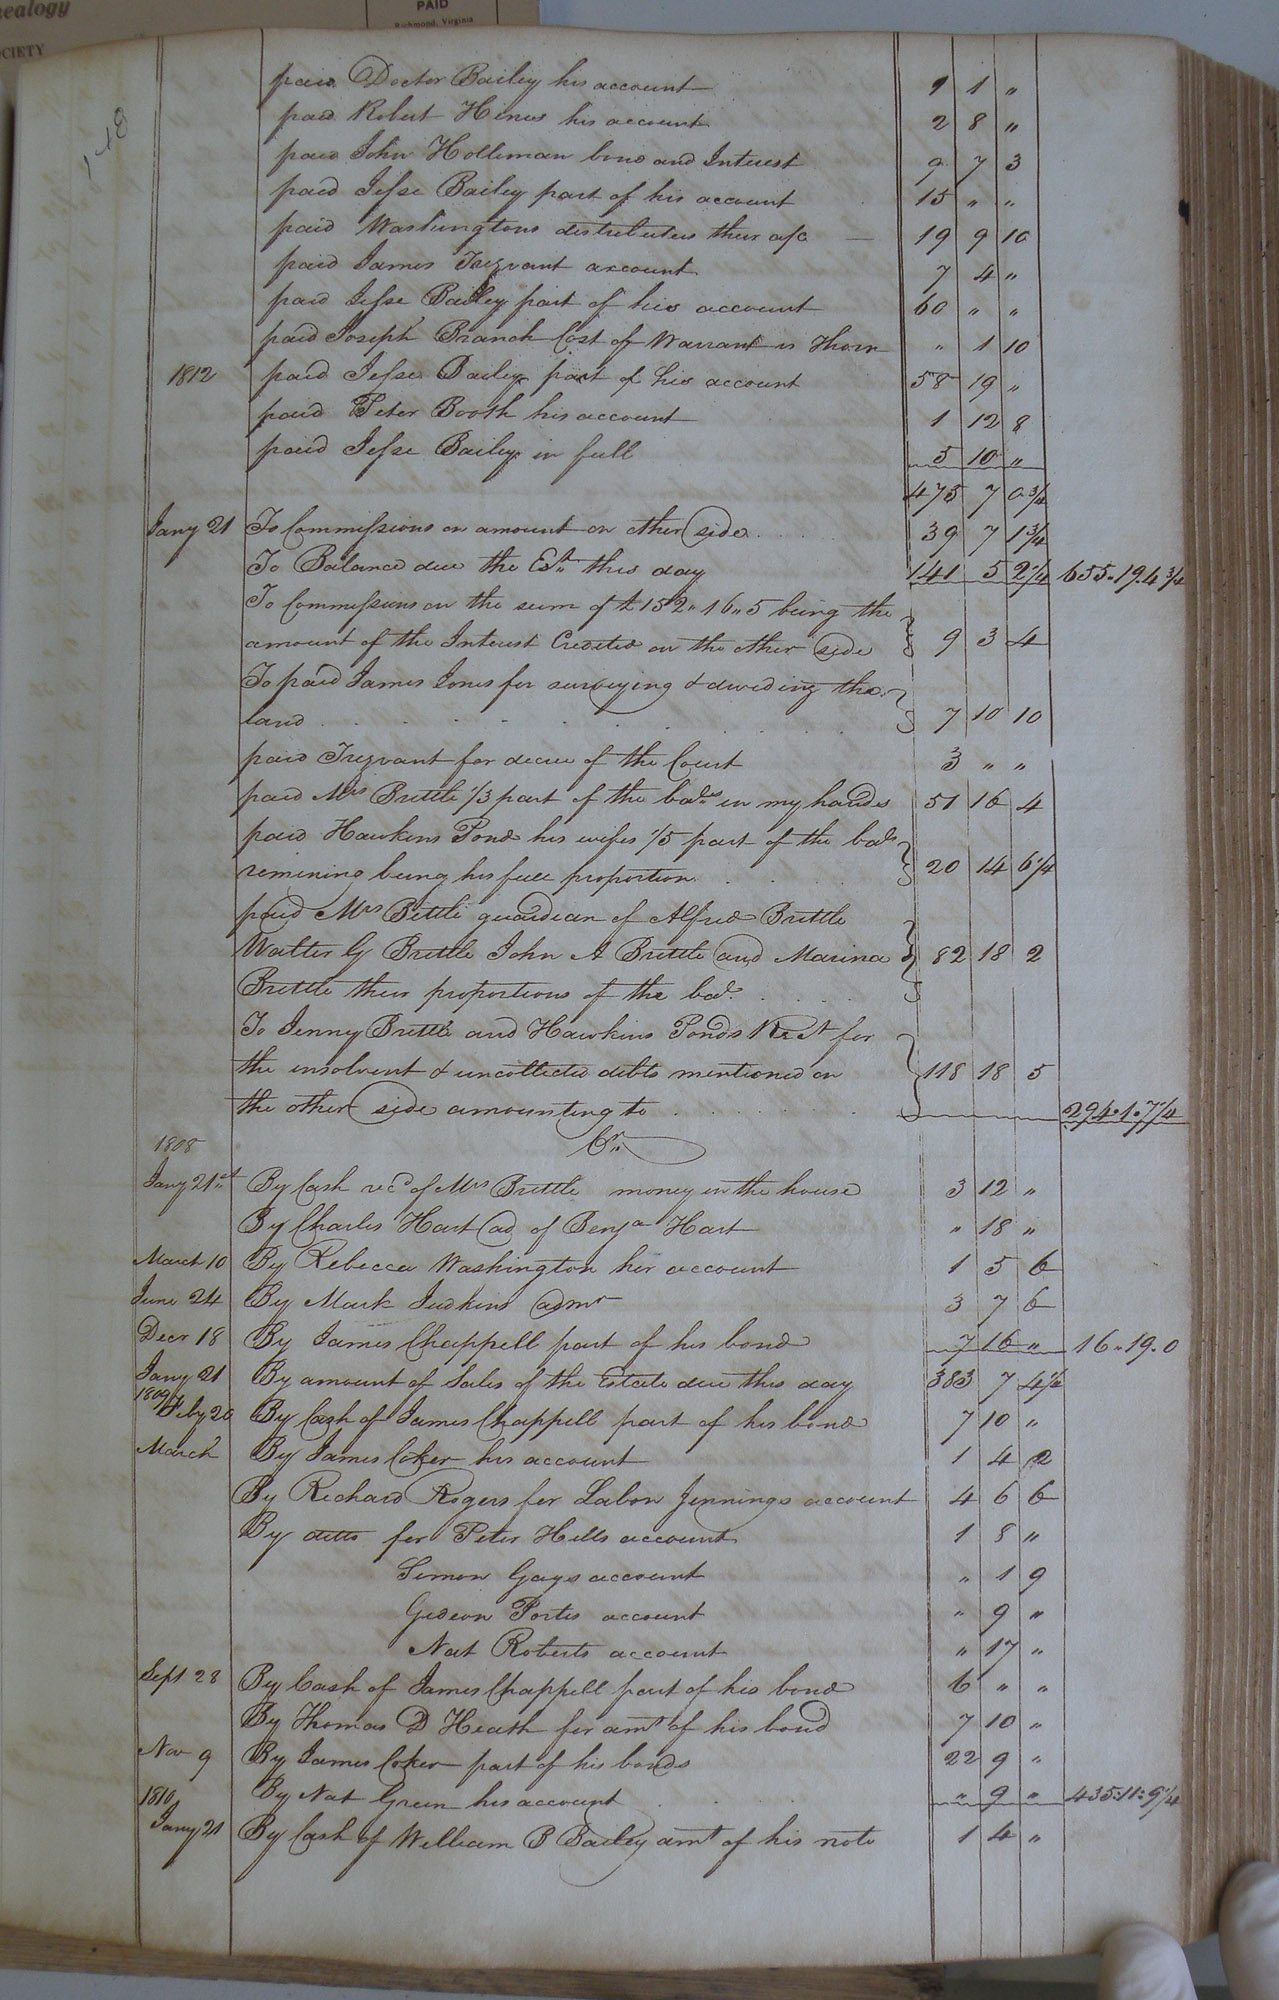 nealogy
OCIETY
PAID
Richmond, Virginia
paid Doctor Bailey his account 9 1 "
paid Robert Hines his account 2 8 "
paid John Holleman bond and Interest 9 7 3
paid Jesse Bailey part of his account 15 " "
paid Washingtons distributees their a/c 19 9 10
paid James Trezvant account 7 4 "
paid Jesse Bailey part of his account 60 " "
paid Joseph Branch Cost of Warrant vs Thorn " 1 10
1812 paid Jesse Bailey part of his account 58 19 "
paid Peter Booth his account 1 12 8
paid Jesse Bailey in full 5 10 "
475 7 0 3/4
Jany 21 To Commissions on amount on other side 39 7 1 3/4
To Balance due the Est. this day 141 5 2 1/4 655.19.4 3/4
To Commissions on the sum of £152"16"5 being the
amount of the Interest Credited on the other side 9 3 4
To paid James Jones for surveying & deviding the
land 7 10 10
paid Trezvant for decree of the Court 3 " "
paid Mrs Brittle 1/3 part of the bals in my hands 51 16 4
paid Hawkins Pond his wifes 1/5 part of the bals
remining being his full proportion 20 14 6 1/4
paid Mrs Bittle guardian of Alfred Brittle
Walter G Brittle John A Brittle and Marina 82 18 2
Brittle their proportions of the bal.
To Jenny Brittle and Hawkins Ponds Rect for
the insolvent & uncollected debts mentioned on 118 18 5
the other side amounting to 294.1.7 1/4
1808 Cr.
Jany 21st By Cash recd of Mrs Brittle money in the house 3 12 "
By Charles Hart ad of Benja Hart " 18 "
March 10 By Rebecca Washington her account 1 5 6
June 24 By Mark Judkins admr 3 7 6
Decr 18 By James Chappell part of his bond 7 16 " 16"19.0
Jany 21 By amount of Sales of the Estate due this day 383 7 4 1/2
1809 Feby 20 By Cash of James Chappell part of his bond 7 10 "
March By James Coker his account 1 4 2
By Richard Rogers for Labon Jennings account 4 6 6
By ditto for Peter Hills account 1 8 "
Simon Gays account " 1 9
Gedeon Portis account " 9 "
Nat Roberts account " 17 "
Sept 28 By Cash of James Chappell part of his bond 6 " "
By Thomas D Heath for amt of his bond 7 10 "
Nov 9 By James Coker part of his bonds 22 9 "
1810 By Nat Green his account " 9 " 435:11:9 1/4
Jany 21 By Cash of William B Bailey amt of his note 1 4 "